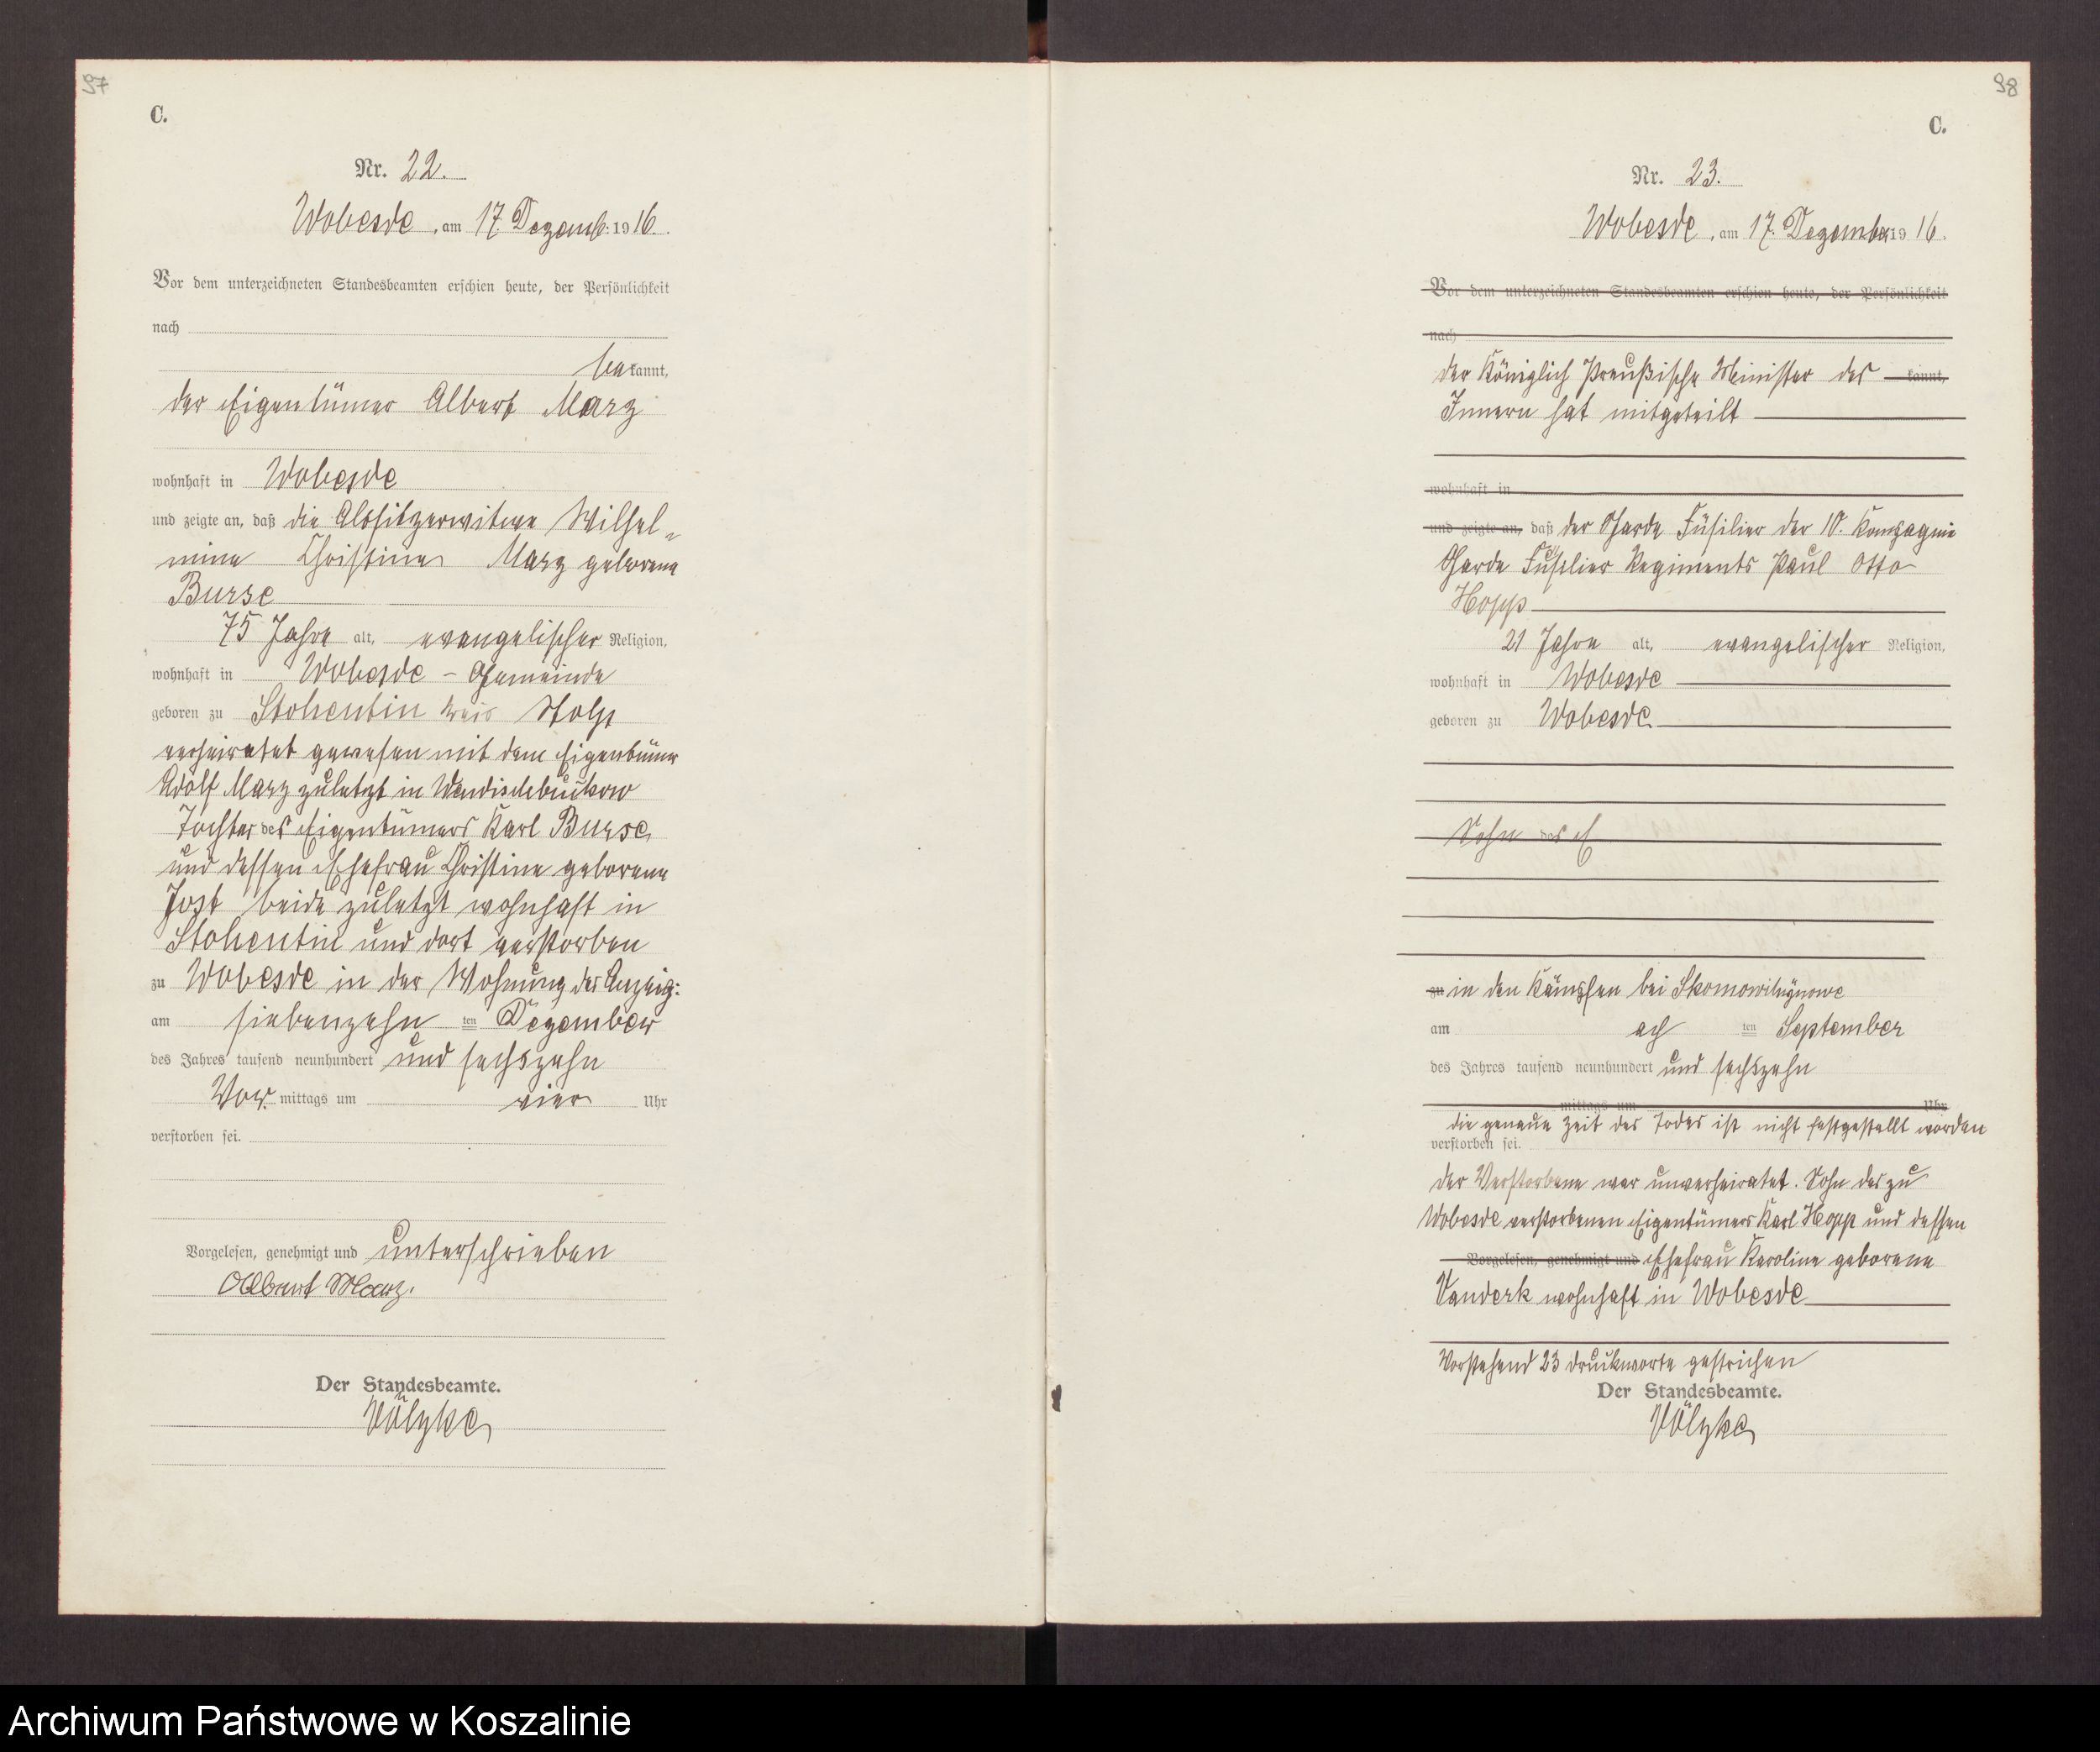 97
C.
Nr. 22.
Wobesde, am 17. Dezemb. 1916.
Vor dem unterzeichneten Standesbeamten erschien heute, der Persönlichkeit
nach
bekannt,
der Eigentümer Albert Marz
wohnhaft in Wobesde
und zeigte an, daß die Altsitzerwitwe Wilhel-
mine Christine Marz geborene
Burse
75 Jahre alt, evangelischer Religion,
wohnhaft in Wobesde - Gemeinde
geboren zu Stohentin Kreis Stolp
verheiratet gewesen mit dem Eigentümer
Adolf Marz zuletzt in Wendischbuckow
Tochter des Eigentümers Karl Burse
und dessen Ehefrau Christine geborene
Jost beide zuletzt wohnhaft in
Stohentin und dort verstorben
zu Wobesde in der Wohnung des Anzeig:
am siebenzehn ten Dezember
des Jahres tausend neunhundert und sechszehn
Vor mittags um vier Uhr
verstorben sei.
Vorgelesen, genehmigt und unterschrieben
Albert Marz.
Der Standesbeamte.
Völzke
98
C.
Nr. 23.
Wobesde, am 17. Dezember 1916.
Vor dem unterzeichneten Standesbeamten erschien heute, der Persönlichkeit
nach
der Königlich Preußische Minister des kannt,
Innern hat mitgeteilt
wohnhaft in
und zeigte an, daß der Garde Füsilier der 10. Kompagnie
Garde Füsilier Regiments Paul Otto
Hopp
21 Jahre alt, evangelischer Religion,
wohnhaft in Wobesde
geboren zu Wobesde
Sohn des E
zu in den Kämpfen bei
am ach ten September
des Jahres tausend neunhundert und sechszehn
mittags um Uhr
die genaue Zeit des Todes ist nicht festgestellt worden
verstorben sei.
der Verstorbene war unverheiratet. Sohn des zu
Wobesde verstorbenen Eigentümers Karl Hopp und dessen
Vorgelesen, genehmigt und Ehefrau Karoline geborene
Vanderk wohnhaft in Wobesde
Vorstehend 23 Druckworte gestrichen
Der Standesbeamte.
Völzke
Archiwum Państwowe w Koszalinie